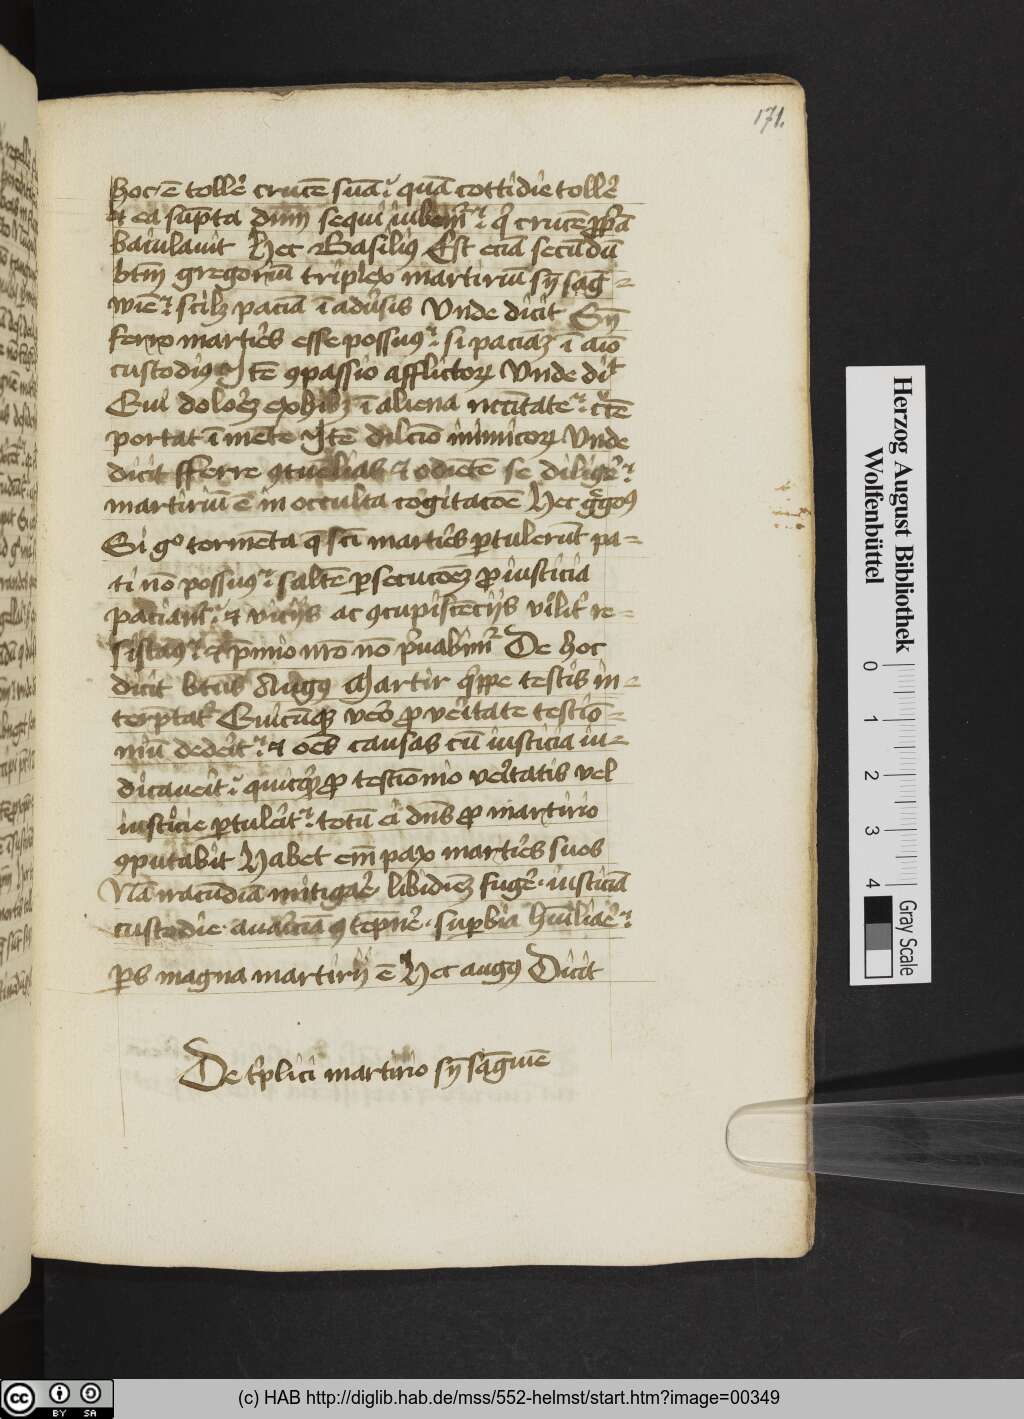 171.
hoc ē tollē crucē suā quā cottidie tollē
et ea sūpta dnm̄ sequi iubemr̄ q̄ crucē ꝓpͥā
baiulavit Hec Basiliꝰ Est eciā secūdū
btm̄ gregoriū triplex martiriū sn̄ saḡ
wīe scilꝫ paciā ī adūsis Unde dicit Sn̄
ferro martires esse possumꝰ si paciāꝫ ī aīo
custodiꝰ Itē ꝯpassio afflictoꝝ Unde dīt
Qui doloēꝫ exhibꝫ ī aliena nccītate crͨē
portat ī mēte Itē dilcīo inimicoꝝ Unde
dicit fferre ꝯtuēlias et odiētē se diligē
martiriū ē in occulta cogitacōē Hec gͣgoꝰ
Si gͦ tormēta q̄ scī martires ꝑtulerūt pa
ti nō possumꝰ saltē ꝑsecucōēꝫ ꝓ iusticia
paciamr̄ et viciis ac ꝯcupiscēciis vīlit̄ re
sistamꝰ et p̄mio nrō nō pͥuabimr̄ De hoc
dicit btūs Augꝰ Martir qͥppe testis in
terp̄tat̄ Quicūqꝫ veͦ ꝓ veͥtate testīo
niū dedeit̄ et oēs causas cū iusticia iu
dicaveit̄ quitqͥd ꝓ testīonio veͥtatis vel
iusticie ꝑtuleit̄ totū ei dn̄s ꝓ martirio
ꝯputabit Habet em̄ pax martires suos
Nā iracūdiā mitigaē libidiēꝫ fugē iusticiā
custodīe avaͥciā ꝯtēpn̄e suꝑbiā hūiliaē
ꝑs magna martirii ē Hec augꝰ Dicit
De tͥplici martirio sn̄ sāgwīē
Herzog August Bibliothek
Wolfenbüttel
0 1 2 3 4
Gray Scale
cc BY SA
(c) HAB http://diglib.hab.de/mss/552-helmst/start.htm?image=00349